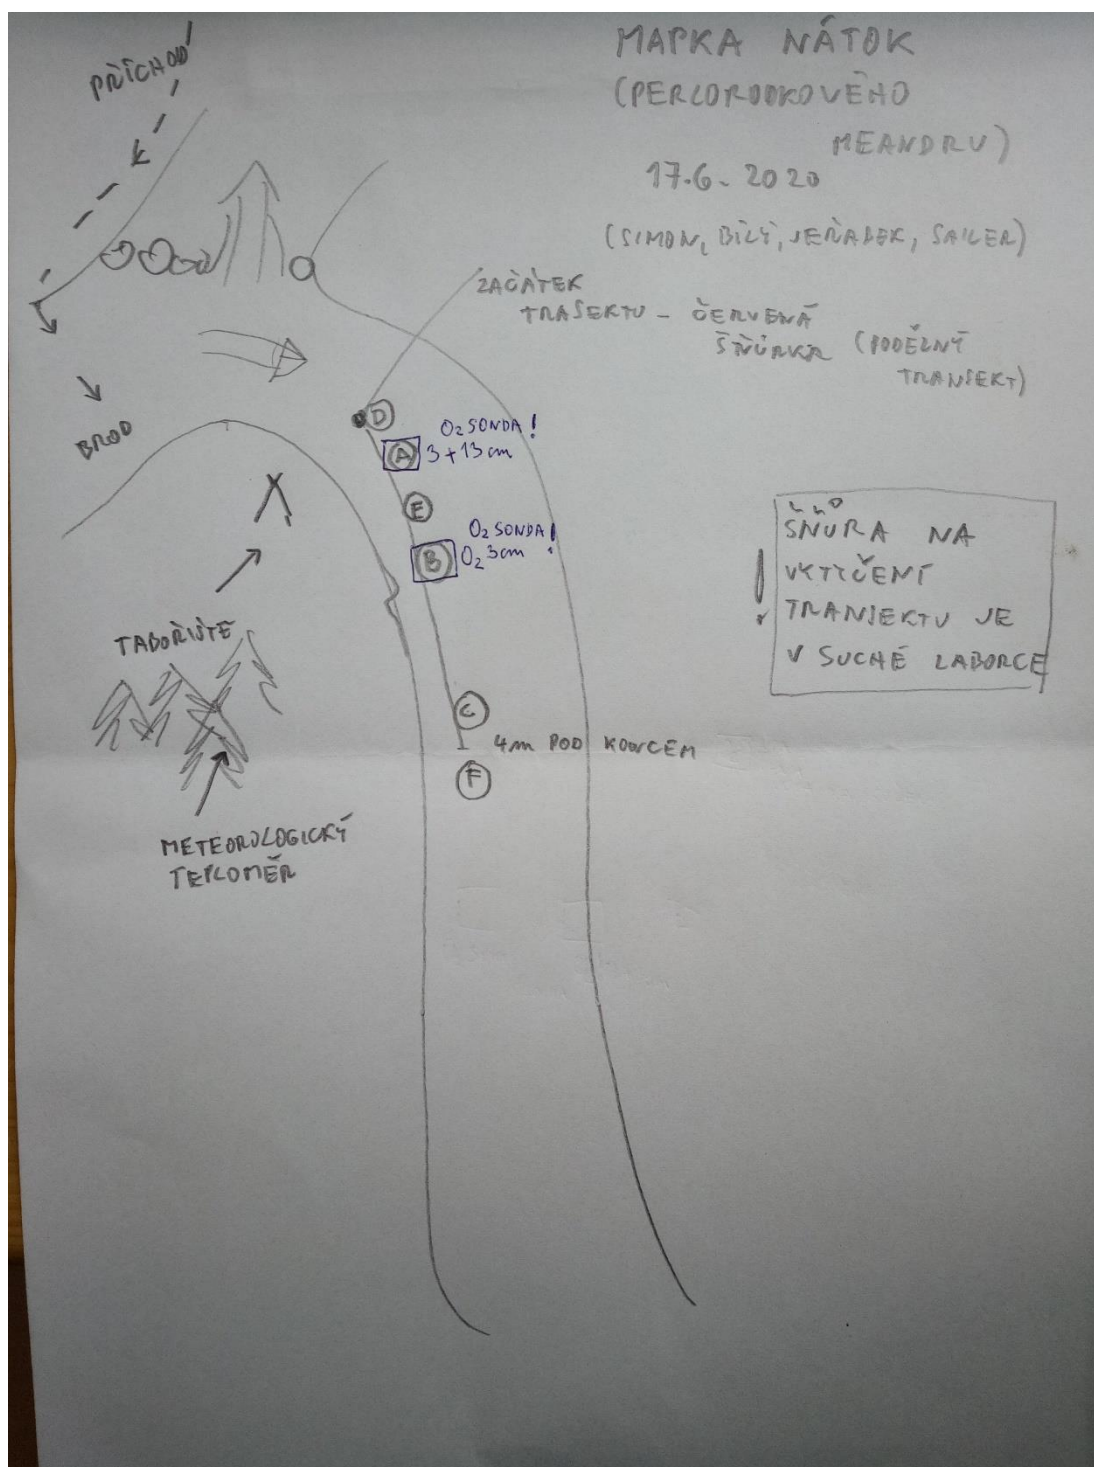 MAPKA NÁTOK
(PERLORODKOVÉHO
MEANDRU)
17.6. 2020
(SIMON, BÍLÝ, JEŘÁBEK, SAILER)
PŘÍCHOD
ZAČÁTEK
TRASEKTU - ČERVENÁ
ŠŇŮRKA (PODÉLNÝ
TRANSEKT)
BROD
D
O2 SONDA!
A 3 + 13 cm
E
O2 SONDA!
B O2 3cm
ŠŇŮRA NA
VYTYČENÍ
! TRANSEKTU JE
V SUCHÉ LABORCE
TABOŘIŠTĚ
C
4m POD KONCEM
F
METEOROLOGICKÝ
TEPLOMĚR